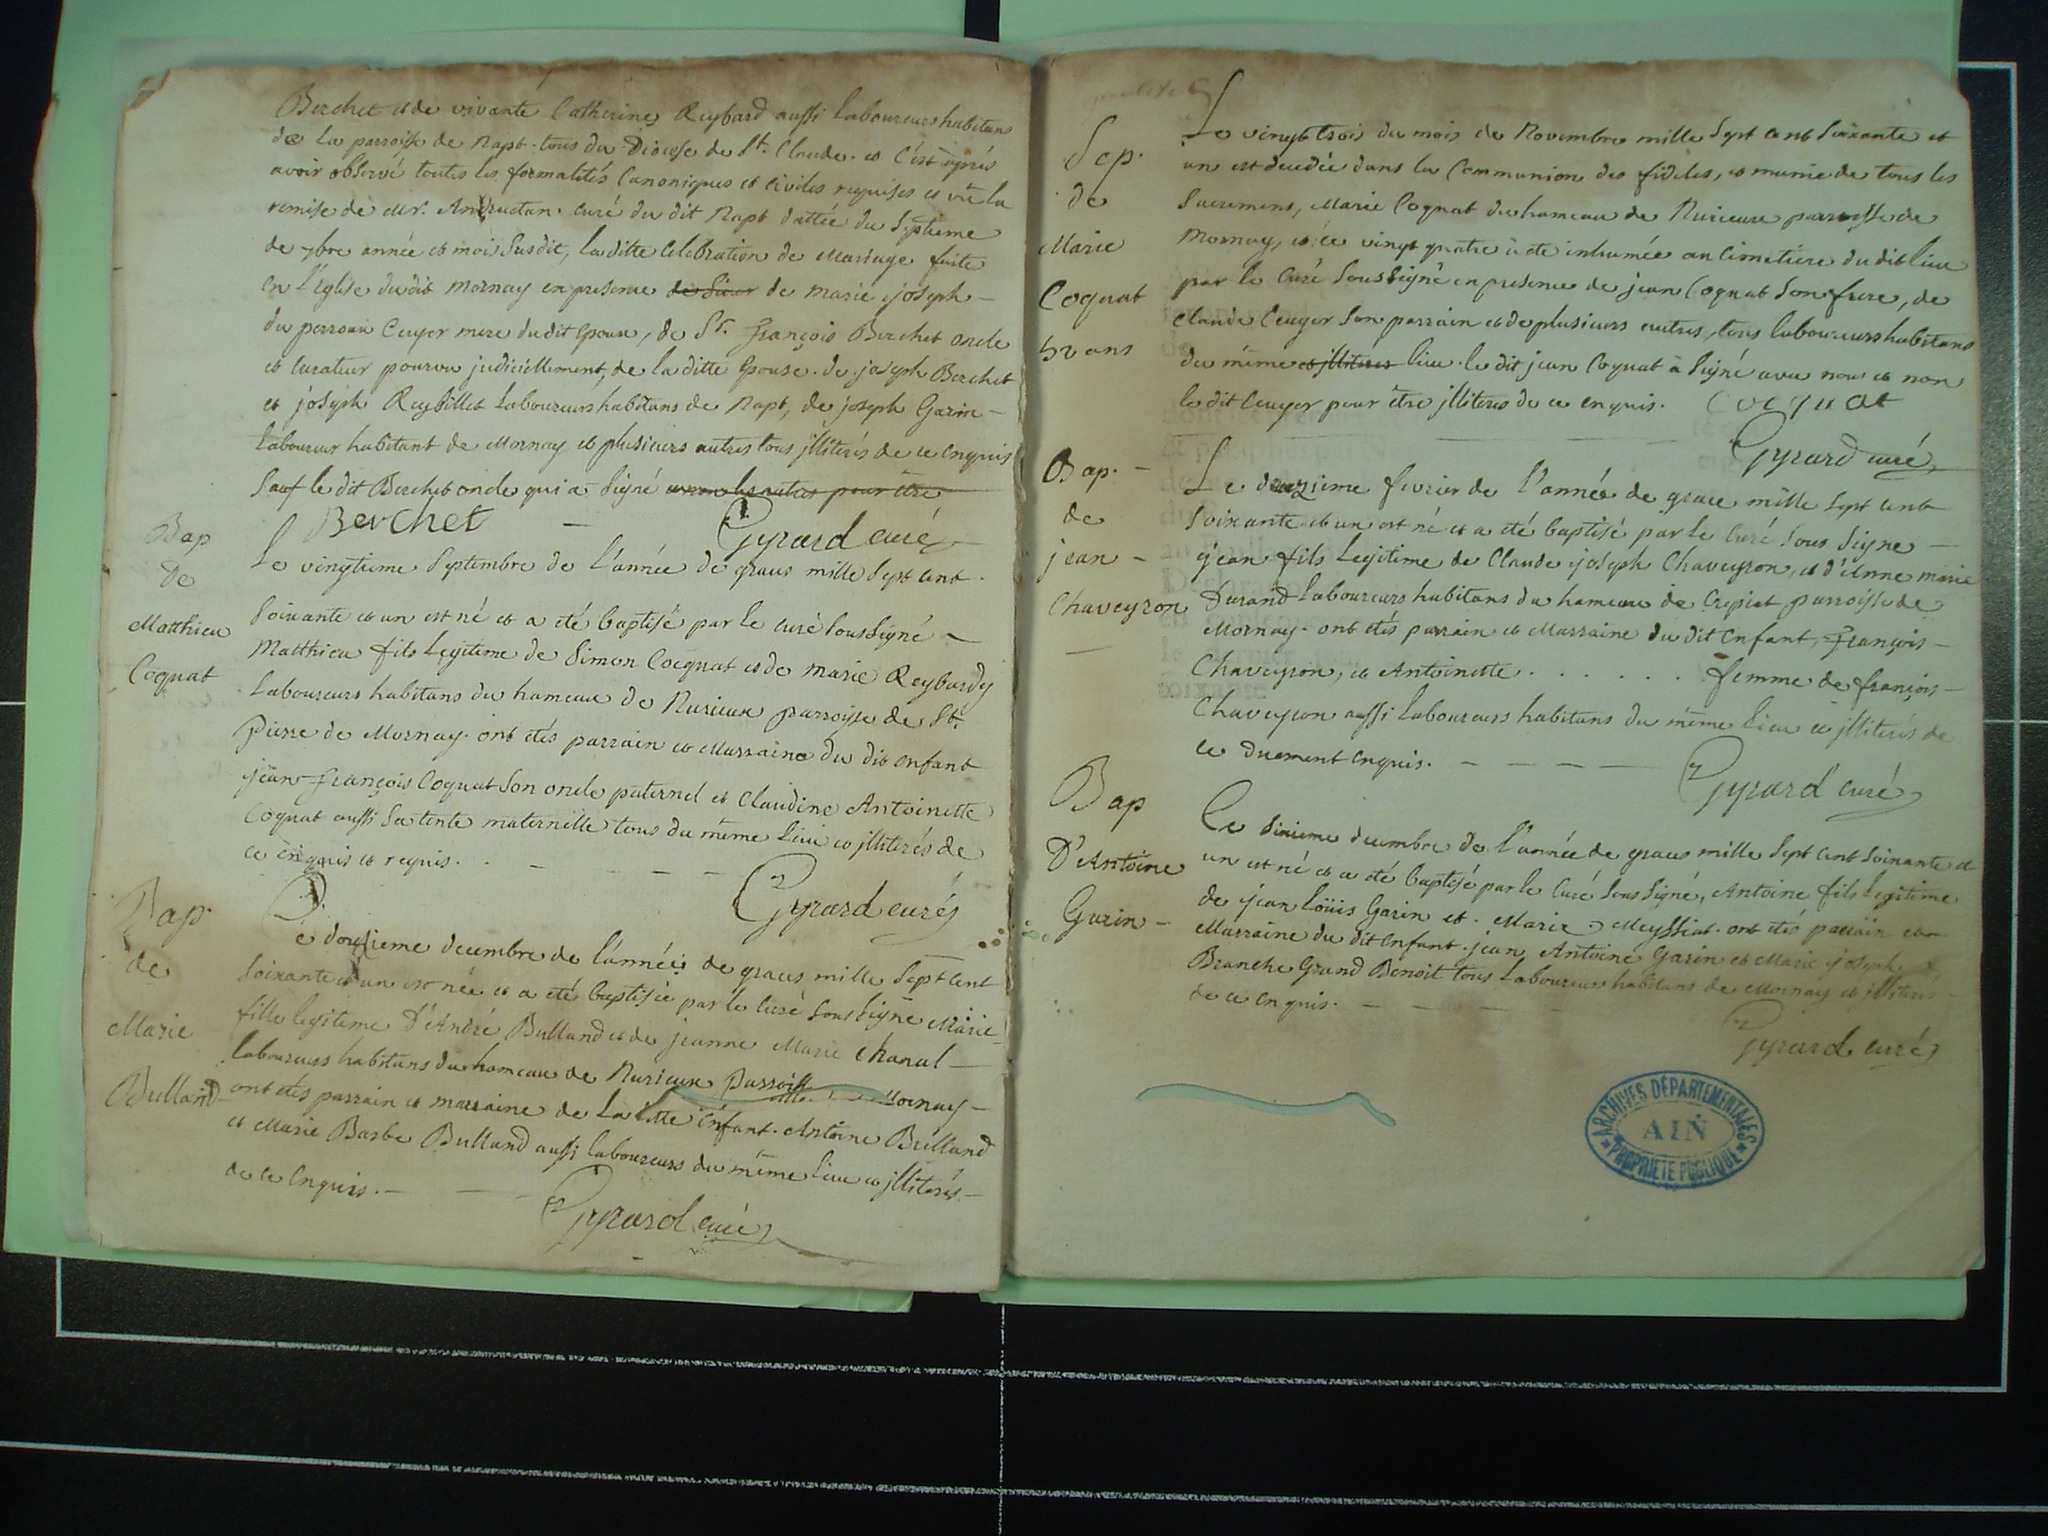 Berchet et de vivante Catherine Reybard aussi laboureurs habitans
de La parroisse de Napt. tous du Diocese de St. Claude. et c'est après
avoir observé toutes les formalités Canoniques et civiles requises et vû la
remise de Mr. curé du dit Napt dattée du septieme
de 7bre année et mois susdit, la ditte celebration de Mariage faite
en l'Eglise du dit Mornay en presence de Sieur de marie joseph -
du perroux Cuyer mere du dit Epoux, de Sr. françois Berchet oncle
et curateur pourvu judiciëllement, de la ditte Epouse. de joseph Berchet
et joseph Reybillet Laboureurs habitans de Napt, de joseph Garin -
Laboureur habitant de Mornay et plusieurs autres tous jlliterés de ce enquis
Sauf le dit Berchet oncle qui a signé avec les autres pour être
Berchet - Gyrard curé
Bap
de
Matthieu
Coquat
Le vingtieme Septembre de L'année de graces mille sept cent.
soixante et un est né et a été baptisé par le curé soussigné -
Matthieu fils Legitime de Simon Cocquat et de marie Reybardy
Laboureurs habitans du hameau de Nurieux parroisse de St.
Pierre de Mornay. ont étés parrain et Marraine du dit enfant
jean françois Coquat son oncle paternel et Claudine Antoinette
Coquat aussi sa tente maternelle tous du même lieu et jlliterés de
ce enquis et requis.
Gyrard curé
Bap.
de
Marie
Bulland
Le douzieme decembre de l'année de graces mille sept cent
soixante et un est née et a été baptisée par le curé soussigné Marie
fille legitime D'André Bulland et de jeanne Marie Chanal -
Laboureurs habitans du hameau de Nurieux Parroisse Mornay -
ont étés parrain et marraine de La ditte enfant. Antoine Bulland
et Marie Barbe Bulland aussi laboureurs du même lieu et jlliterés -
de ce Enquis. -
Gyrard curé
Sep.
de
Marie
Coquat
52 ans
Le vingt trois du mois de Novembre mille sept cent soixante et
un est decedée dans la Communion des fideles, et munie de tous les
Sacremens, Marie Coquat du hameau de Nurieux parroisse de
Mornay, et ce vingt quatre à été inhumée au Cimetiere du dit lieu
par le Curé soussigné en presence de jean Coquat son frere, de
Claude Cuyer son parrain et de plusieurs autres, tous laboureurs habitans
du même et jlliteres lieu. le dit jean Coquat à signé avec nous et non
le dit Cuyer pour être jlliteres de ce enquis. Cocquat
Gyrard curé
Bap. -
de
jean -
Chaveyron
Le fevrier de l'année de grace mille sept cent
soixante et un est né et a été baptisé par Le Curé sous signé -
jean fils Legitime de Claude joseph Chaveyron, et d'Anne marie
Durand Laboureurs habitans du hameau de Crepiat parroisse de
Mornay. ont étés parrain et Marraine du dit enfant, françois -
Chaveyron, et Antoinette . . . . . . femme de françois -
Chaveyron aussi laboureurs habitans du même lieu et jlliterés de
ce duement enquis. - - - -
Gyrard curé
Bap
D'Antoine
Garin -
Le sixieme decembre de l'année de graces mille sept cent soixante et
un est né et a été baptisé par le Curé soussigné, Antoine fils legitime
de jean Loüis Garin et. Marie Meyssiat. ont étés parrain et
Marraine du dit enfant. jean Antoine Garin et Marie joseph
Branche Grand Benoit tous Laboureurs habitans de Mornay et jlliterés -
de ce enquis. - - - -
Gyrard curé
ARCHIVES DÉPARTEMENTALES
AIN
PROPRIÉTÉ PUBLIQUE